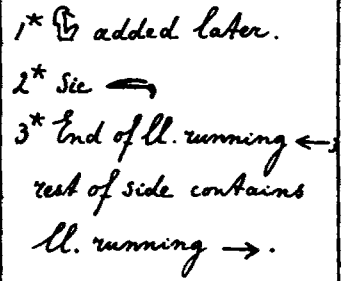 1* added later.
2* Sic
3* End of ll. running ←;
rest of side contains
ll. running →.